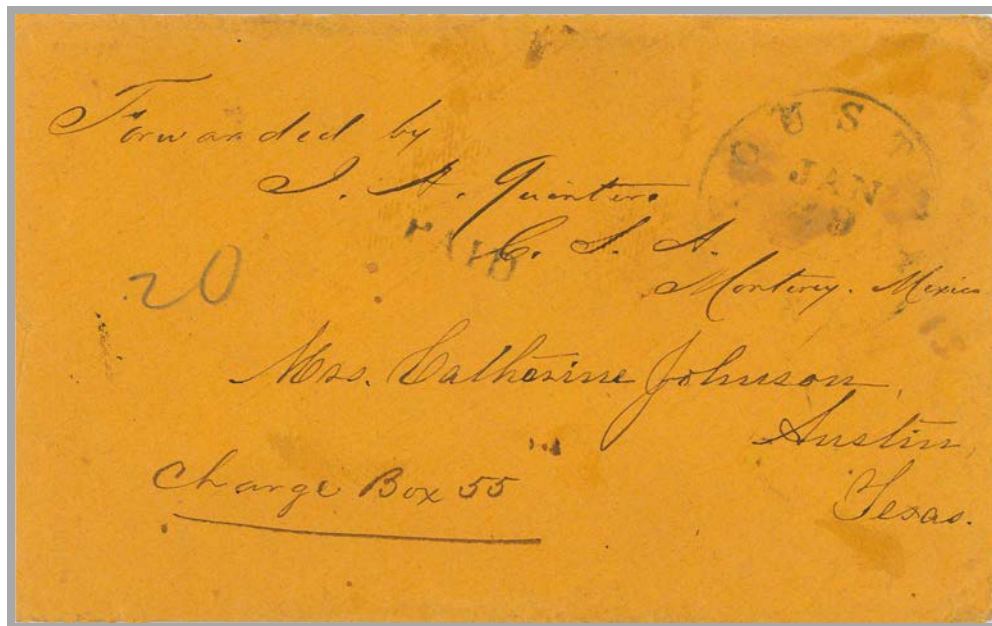 Forwarded by
J. A. Quintero
C. S. A.
Monterey. Mexico
OUST
JAN
PAID
20
Mrs. Catherine Johnson,
Austin,
Texas.
Charge Box 55